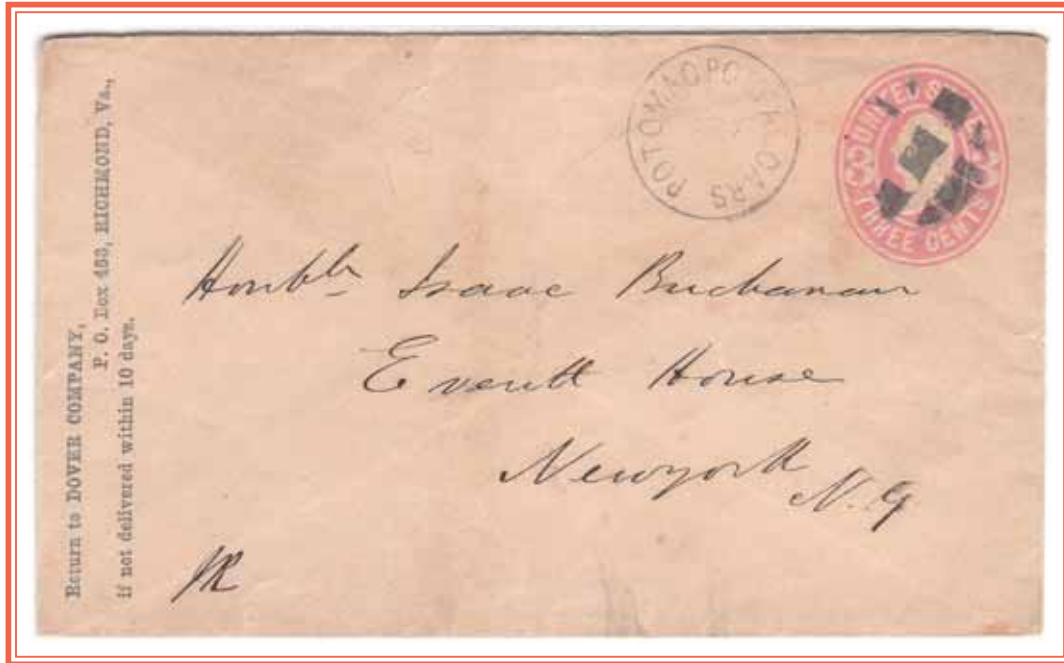 Return to DOVER COMPANY,
P. O. Box 463, RICHMOND, Va.,
if not delivered within 10 days.
CARS
UNITED
THREE CENTS
Honble Isaac Buchanan
Everett House
New york
N.Y